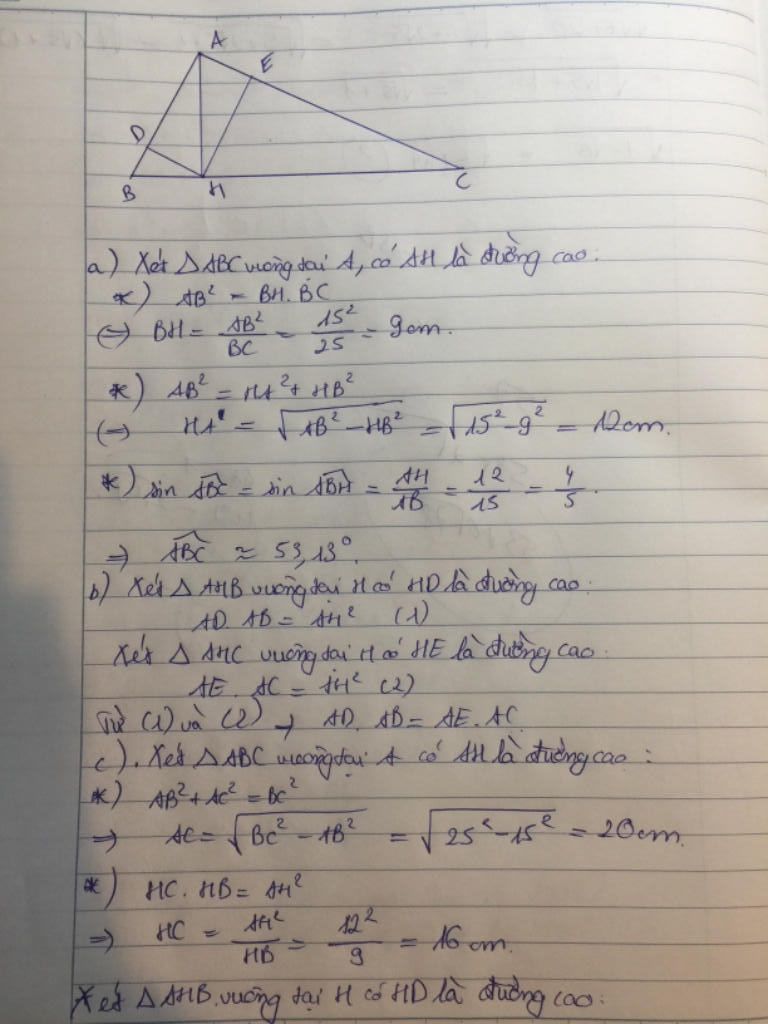 A
E
D
B
H
C
a) Xét △ABC vuông tại A, có AH là đường cao:
*) AB² = BH. BC
(=) BH = AB²/BC = 15²/25 = 9cm.
*) AB² = HA² + HB²
(=) HA = √(AB² - HB²) = √(15² - 9²) = 12cm.
*) sin ABC = sin ABH = AH/AB = 12/15 = 4/5.
=> ABC ≈ 53,13°.
b) Xét △AHB vuông tại H có HD là đường cao:
AD. AB = AH² (1)
Xét △ AHC vuông tại H có HE là đường cao:
AE. AC = AH² (2)
Từ (1) và (2) → AD. AB = AE. AC
c). Xét △ABC vuông tại A có AH là đường cao:
*) AB² + AC² = BC²
=> AC = √(BC² - AB²) = √(25² - 15²) = 20cm.
*) HC. HB = AH²
=> HC = AH²/HB = 12²/9 = 16 cm.
Xét △AHB. vuông tại H có HD là đường cao: